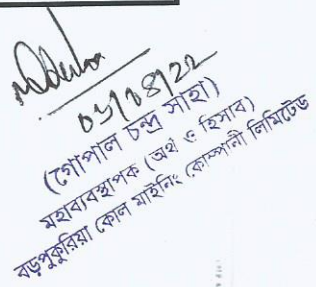 ০১/০৪/২২
(গোপাল চন্দ্র সাহা)
মহাব্যবস্থাপক (অর্থ ও হিসাব)
বড়পুকুরিয়া কোল মাইনিং কোম্পানী লিমিটেড